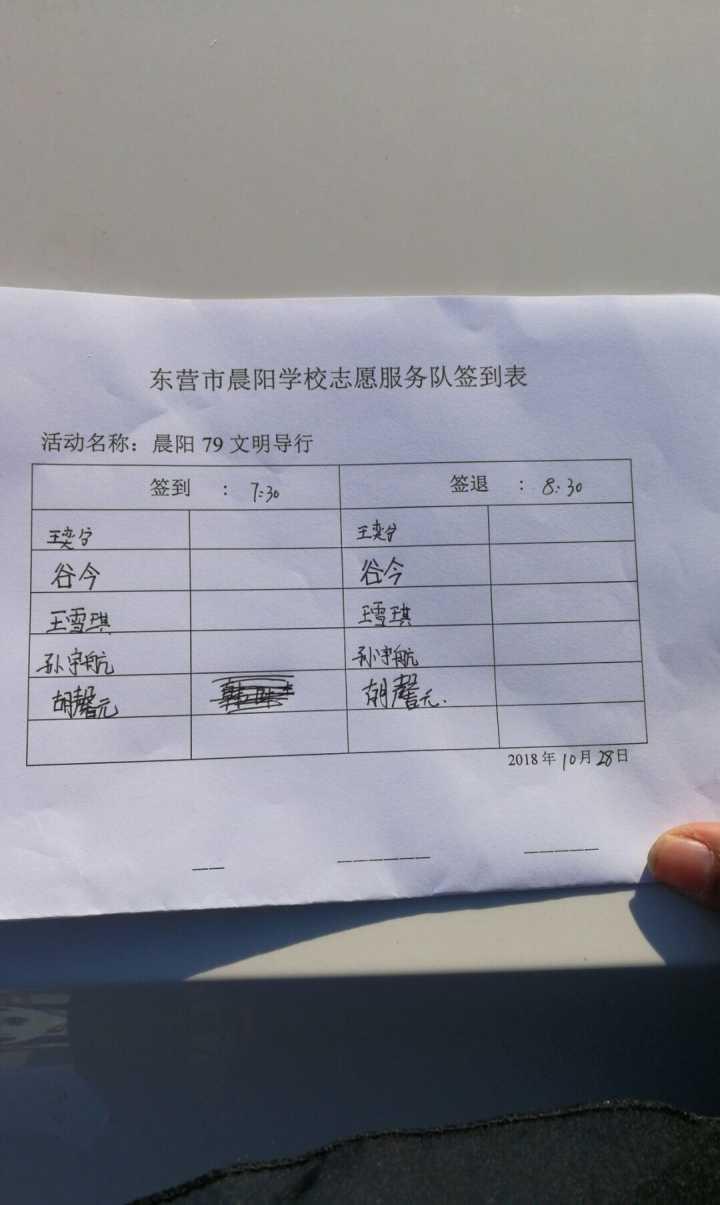 东营市晨阳学校志愿服务队签到表
活动名称：晨阳 79 文明导行
签到 ： 7:30 签退 ： 8:30
王奕兮 王奕兮
谷今 谷今
王雪琪 王雪琪
孙宇航 孙宇航
胡馨元 胡馨元.
2018 年 10 月 28 日